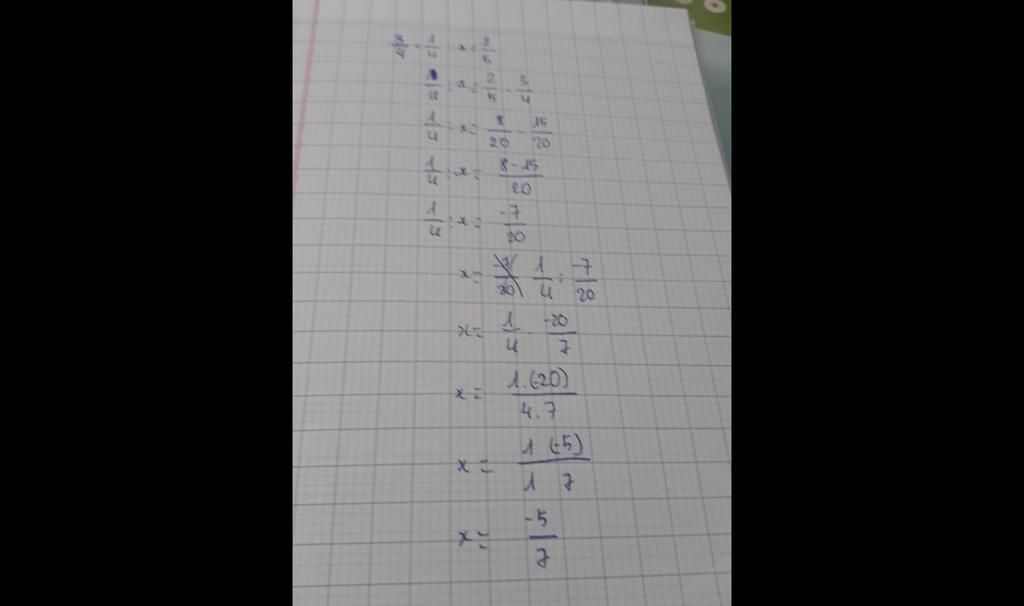 3/4 + 1/4 : x = 2/5
1/4 : x = 2/5 - 3/4
1/4 : x = 8/20 - 15/20
1/4 : x = 8-15/20
1/4 : x = -7/20
x = 1/4 : -7/20
x = 1/4 · -20/7
x = 1.(-20)/4.7
x = 1 (-5)/1 7
x = -5/7